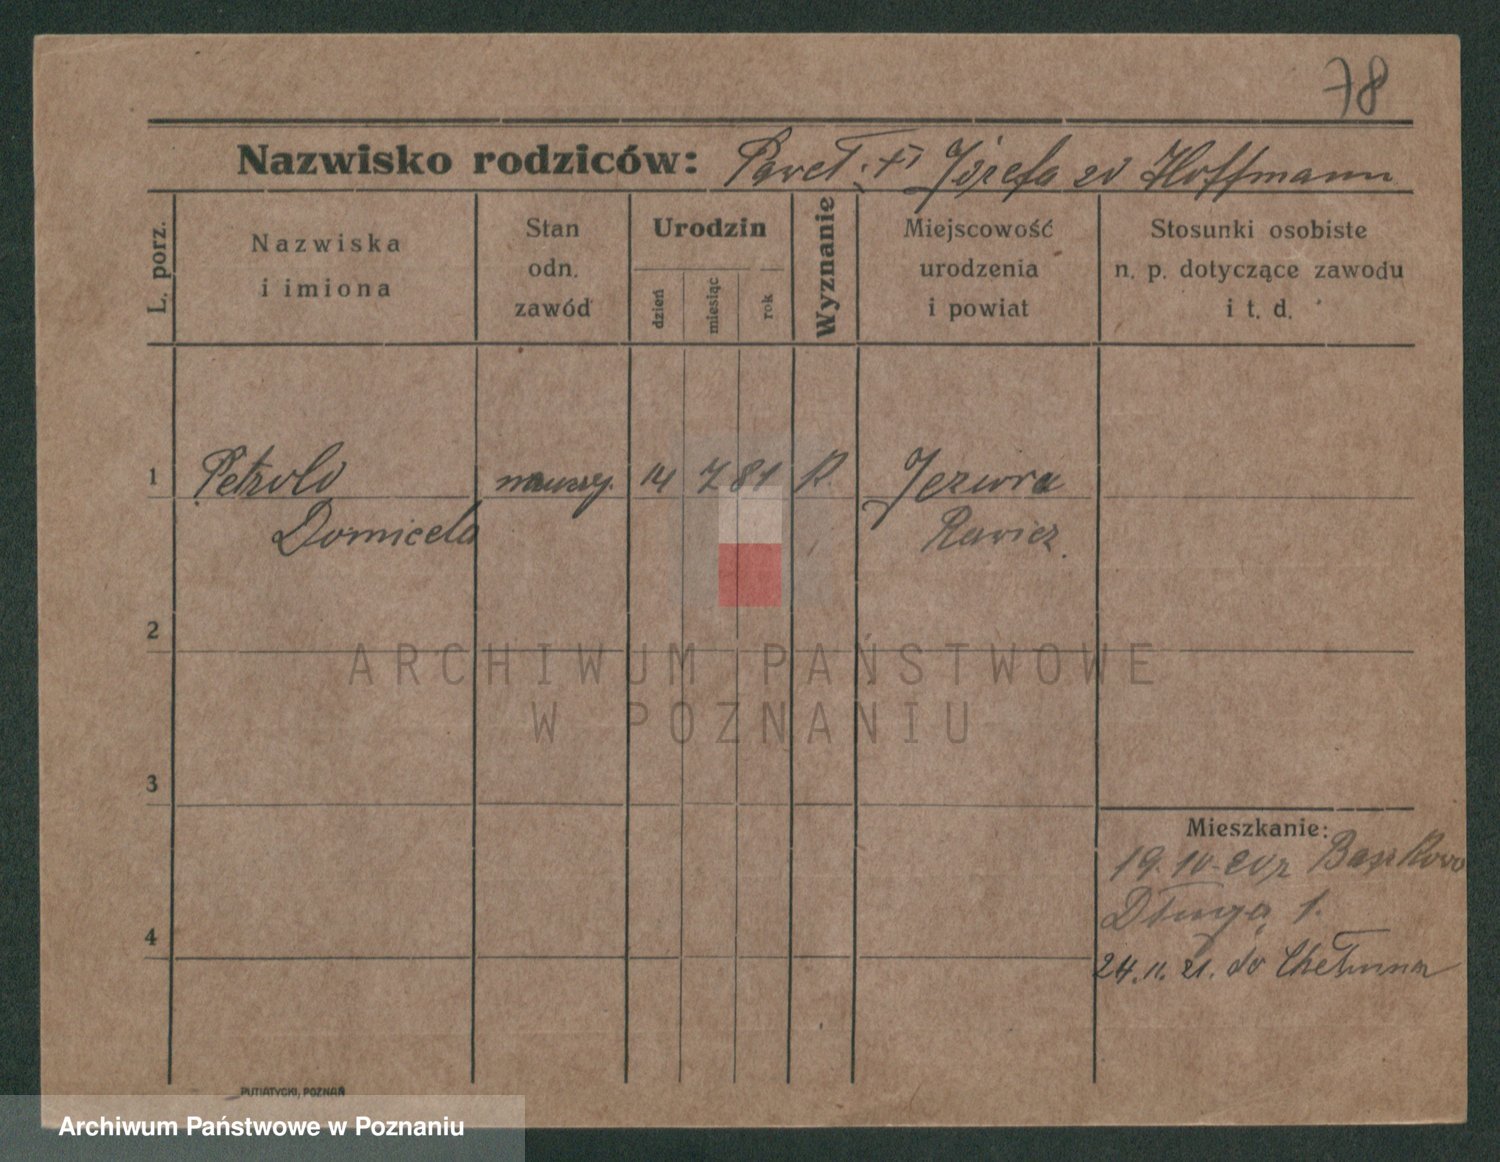 78
Nazwisko rodziców: Paweł + Józefa zd Hoffmann
L. porz.
Nazwiska
i imiona
Stan
odn.
zawód
Urodzin
dzień
miesiąc
rok
Wyznanie
Miejscowość
urodzenia
i powiat
Stosunki osobiste
n. p. dotyczące zawodu
i t. d.
1 14 7 81 R.
Domicela
Rawicz.
2
ARCHIWUM PAŃSTWOWE
W POZNANIU
3
Mieszkanie:
19.10.20 z
Długa 1.
4
24.11.21. do Chełmna
PUTIATYCKI, POZNAŃ
Archiwum Państwowe w Poznaniu